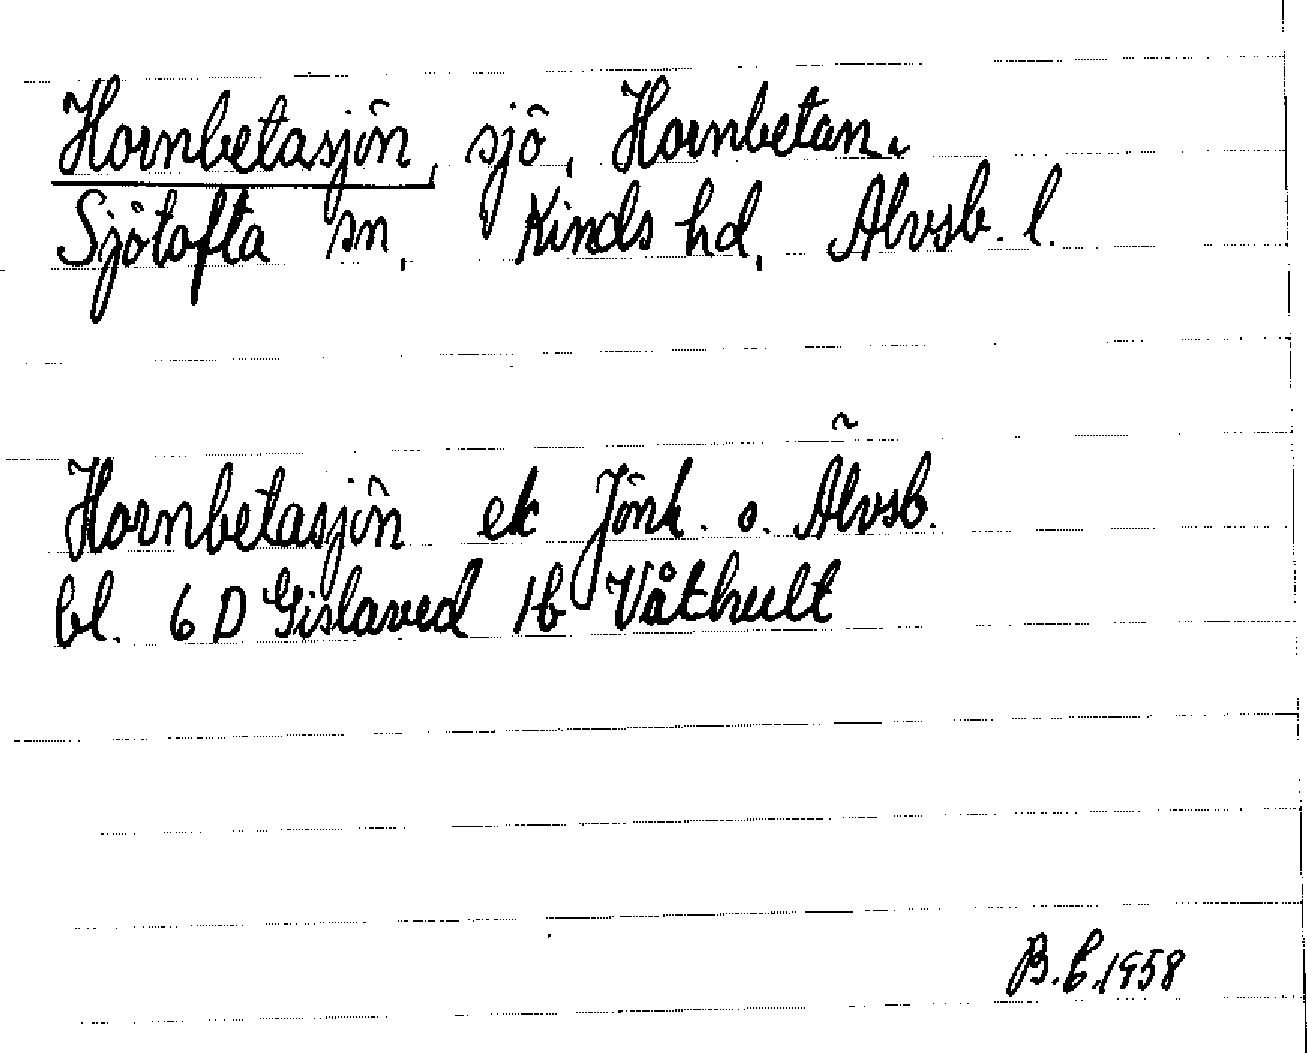 Hornbetasjön, sjö, Hornbetan.
Sjötofta sn, Kinds hd, Älvsb. l.
Hornbetasjön ek Jönk. o. Älvsb.
bl. 6 D Gislaved 1b Våthult
B.E.1958